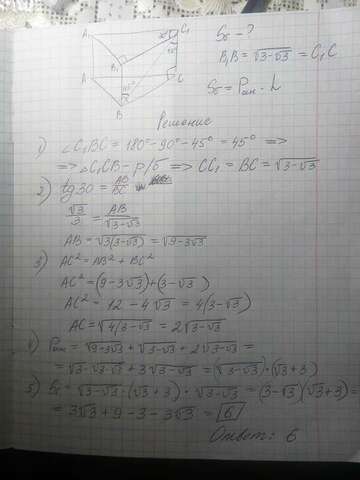 A₁
C₁
B₁
45°
A
C
45°
B
Sб - ?
B₁B = √3-√3 = C₁C
Sб = Pосн · h
Решение
1) ∠C₁BC = 180° - 90° - 45° = 45° =>
=> △C₁CB - р/б => CC₁ = BC = √3-√3
2) tg 30 = AB/BC
√3/3 = AB/√3-√3
AB = √3(3-√3) = √9-3√3
3) AC² = AB² + BC²
AC² = (9-3√3)+(3-√3)
AC² = 12 - 4√3 = 4(3-√3)
AC = √4(3-√3) = 2√3-√3
4) Pосн = √9-3√3 + √3-√3 + 2√3-√3 =
= √3·√3-√3 + 3√3-√3 = (√3-√3)·(√3+3)
5) Sб = √3-√3·(√3+3)·√3-√3 = (3-√3)(√3+3) =
= 3√3+9-3-3√3 = 6
Ответ: 6